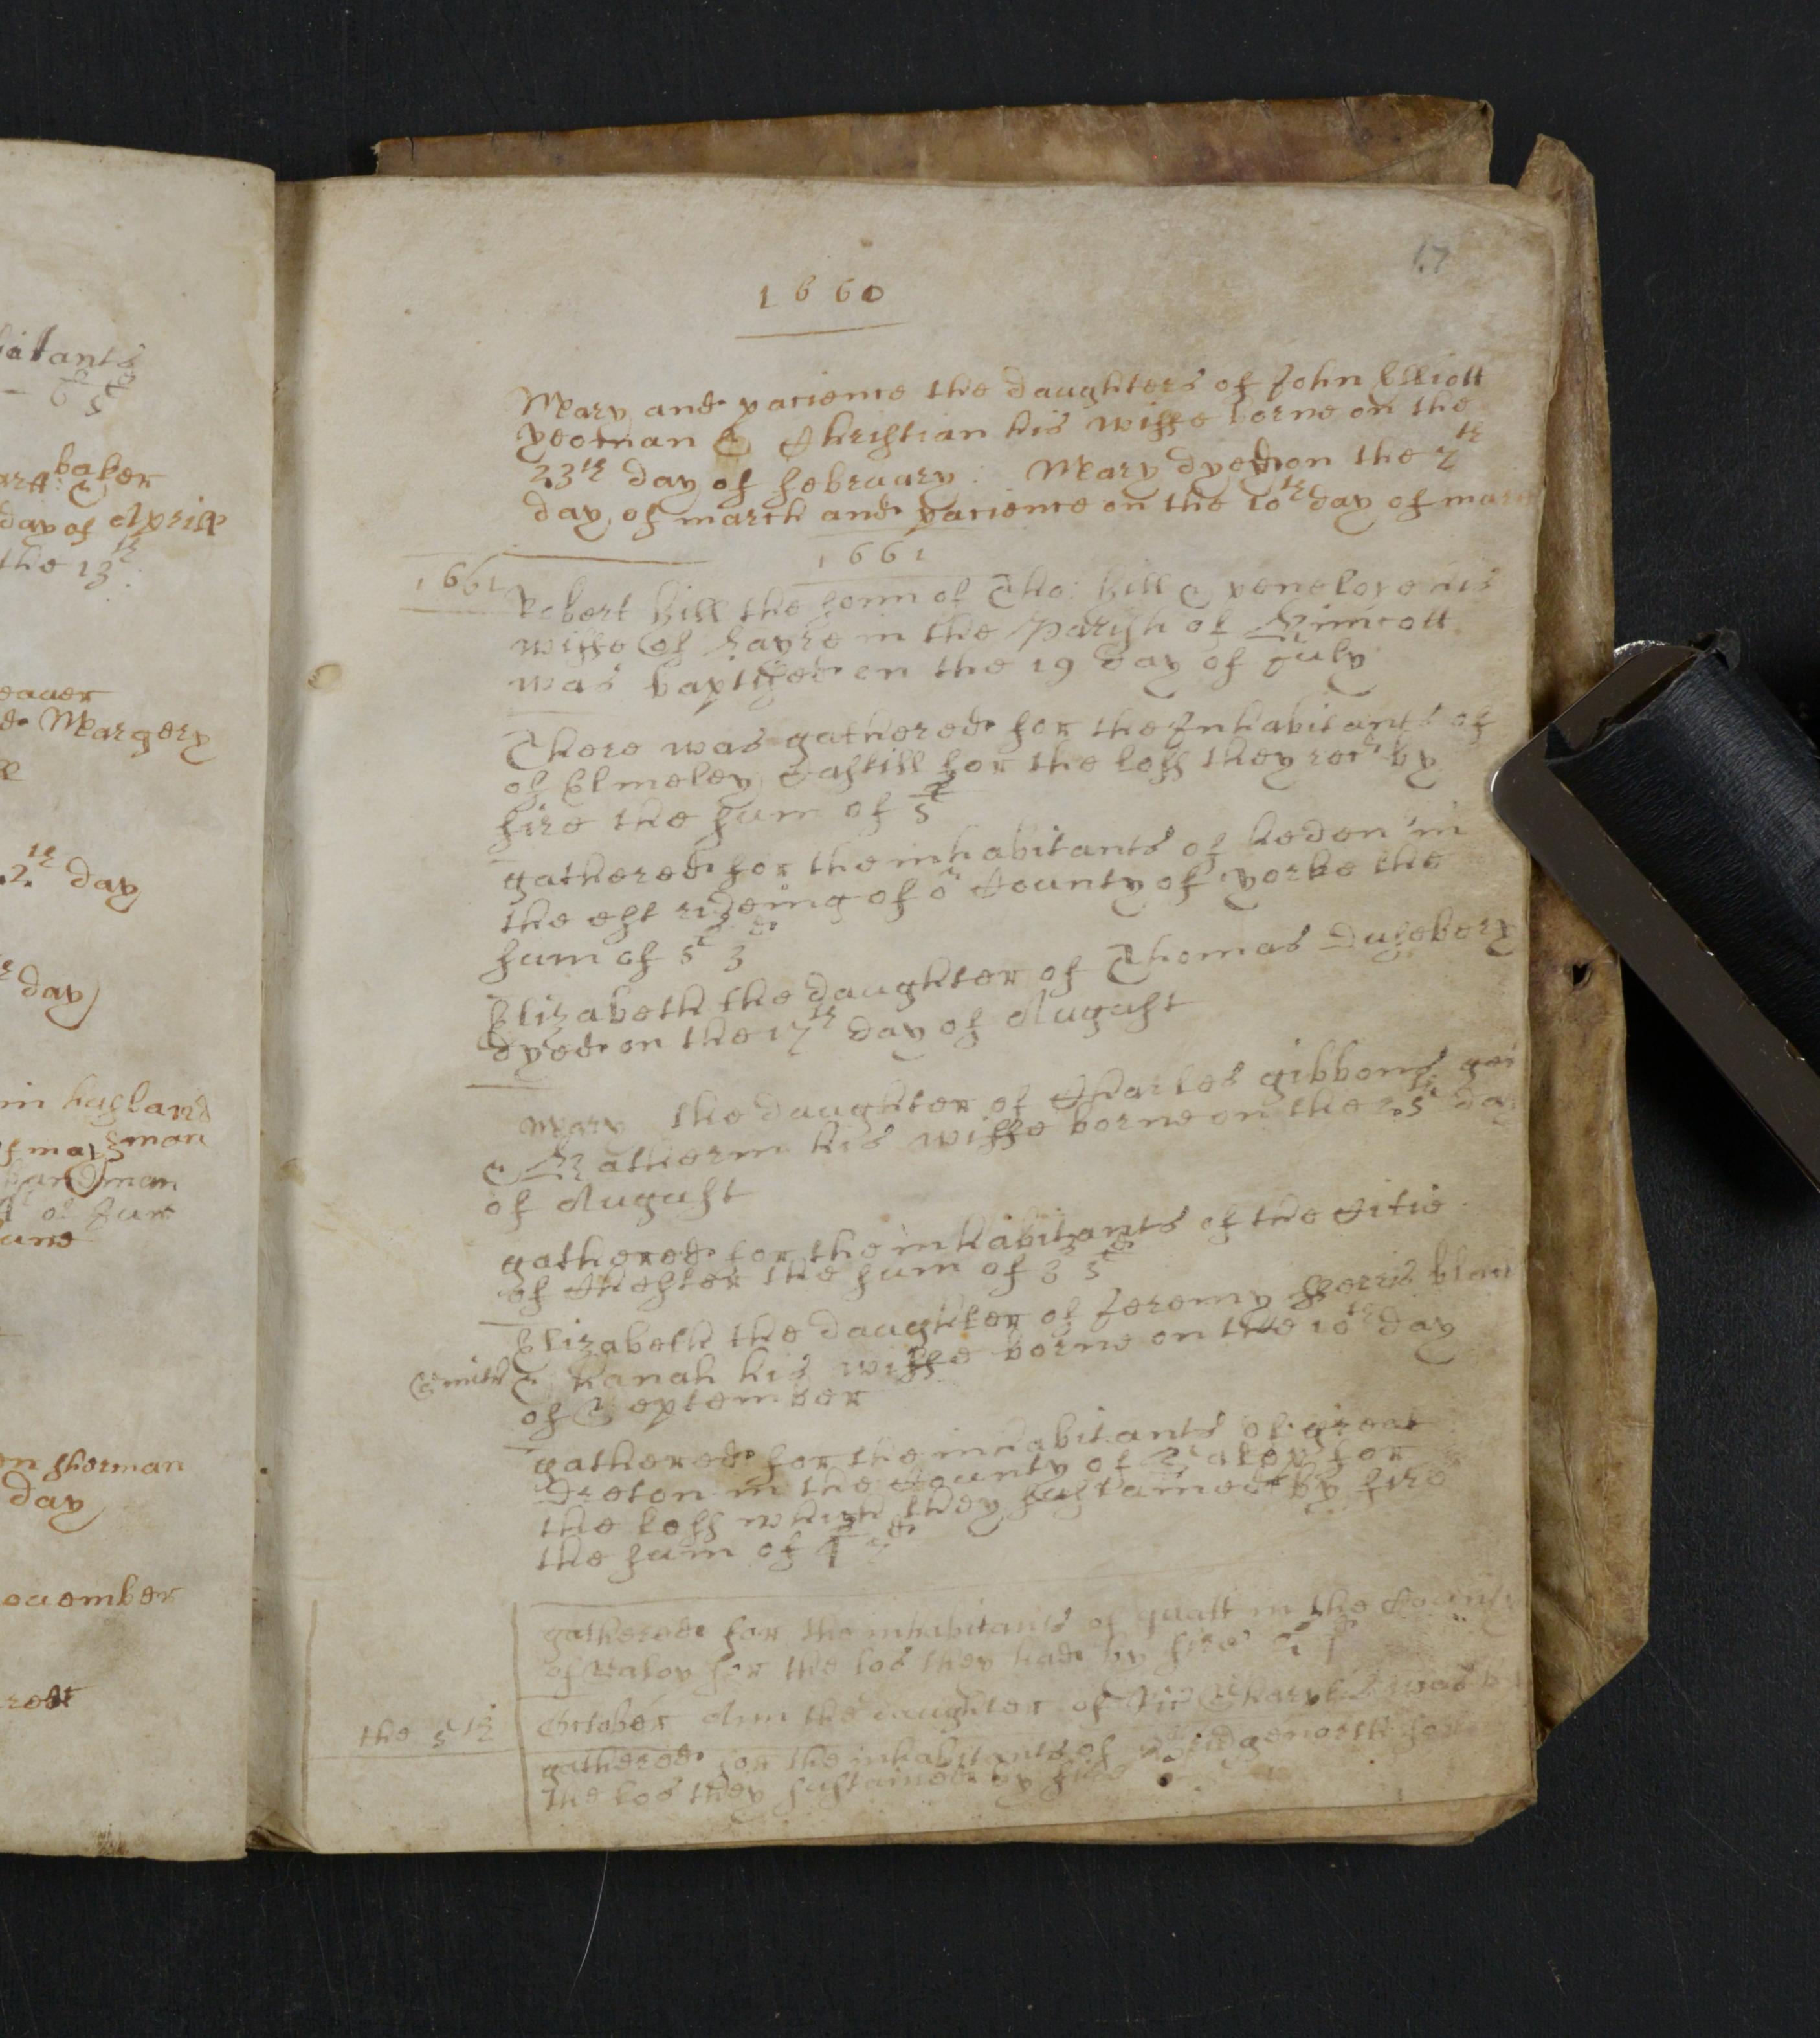 itants
baker
day of Aprill
the 13th
eauer
Margery
2th day
day
in hagland
man
man
of Jun
une
sherman
day
ouember
17
1660
Mary and patience the daughters of John Elliott
yeoman & Christian his wiffe borne on the
23th day of february : Mary dyed on the 7th
day of march and patience on the 10th day of mar
1661
1661
Robert Hill the sonn of Tho: Hill & penelope his
wiffe of hayre in the Parish of Kinicott
was baptised on the 19 day of July
There was gathered for the Inhabitants of
of Elmeley Castill for the loss they recd by
fire the sum of 5s
gathered for the inhabitants of hedon in
the est rideing of or County of yorke the
sum of 5s 3d
Elizabeth the daughter of Thomas Dugebery
dyed on the 17th day of August
Mary the daughter of Charles gibbons gen
& Katherin his wiffe borne on the 25th da
of August
gathered for the inhabitants of the Citie
of Chester the sum of 3s 5d
Elizabeth the daughter of Jeremy fferris blac
Smith & hanah his wiffe borne on the 10th day
of September
gathered for the inhabitants of great
Dreton in the County of Salop for
the loss which they sustained by fire
the sum of 4s
gathered for the inhabitants of quatt in the County
of Salop for the los they had by fire
the 5th October Ann the daughter of Ric was
gathered for the inhabitants of Bridgenorth for
the los they sustained by fire